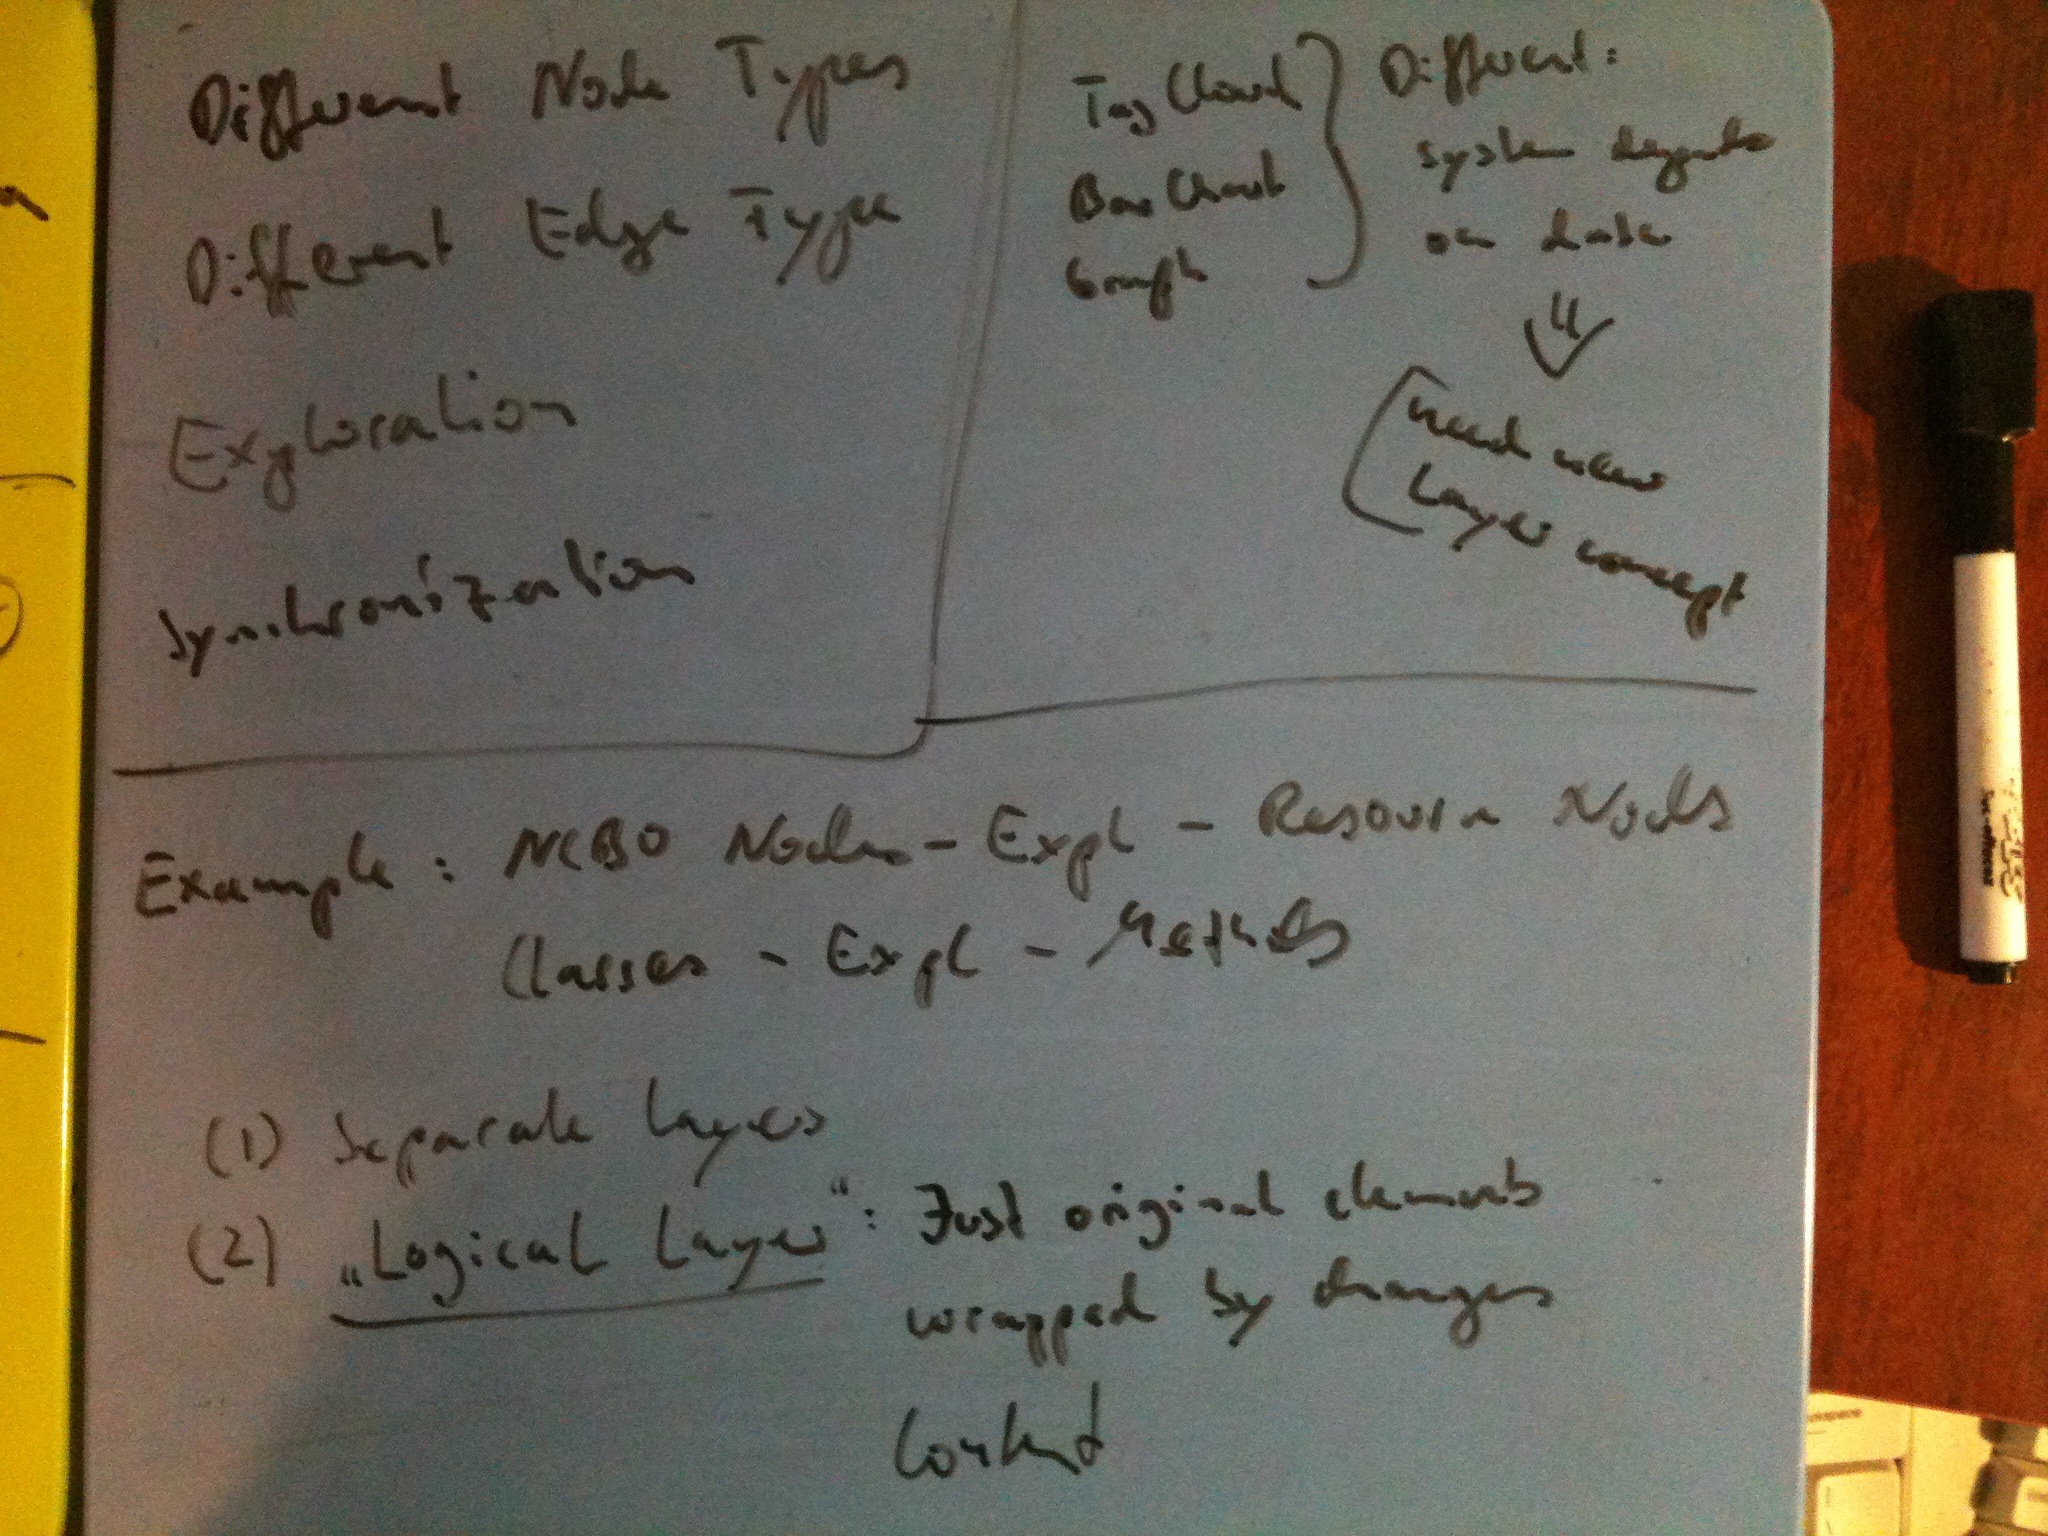 Different Node Types
Different Edge Types
Exploration
Synchronization
Tag Cloud
Bar Chart
Graph
Different:
system depends
on data
need new
layer concept
Example: NCBO Nodes - Expl - Resource Nodes
Classes - Expl - Methods
(1) Separate layers
(2) "Logical Layer": Just original elements
wrapped by changes